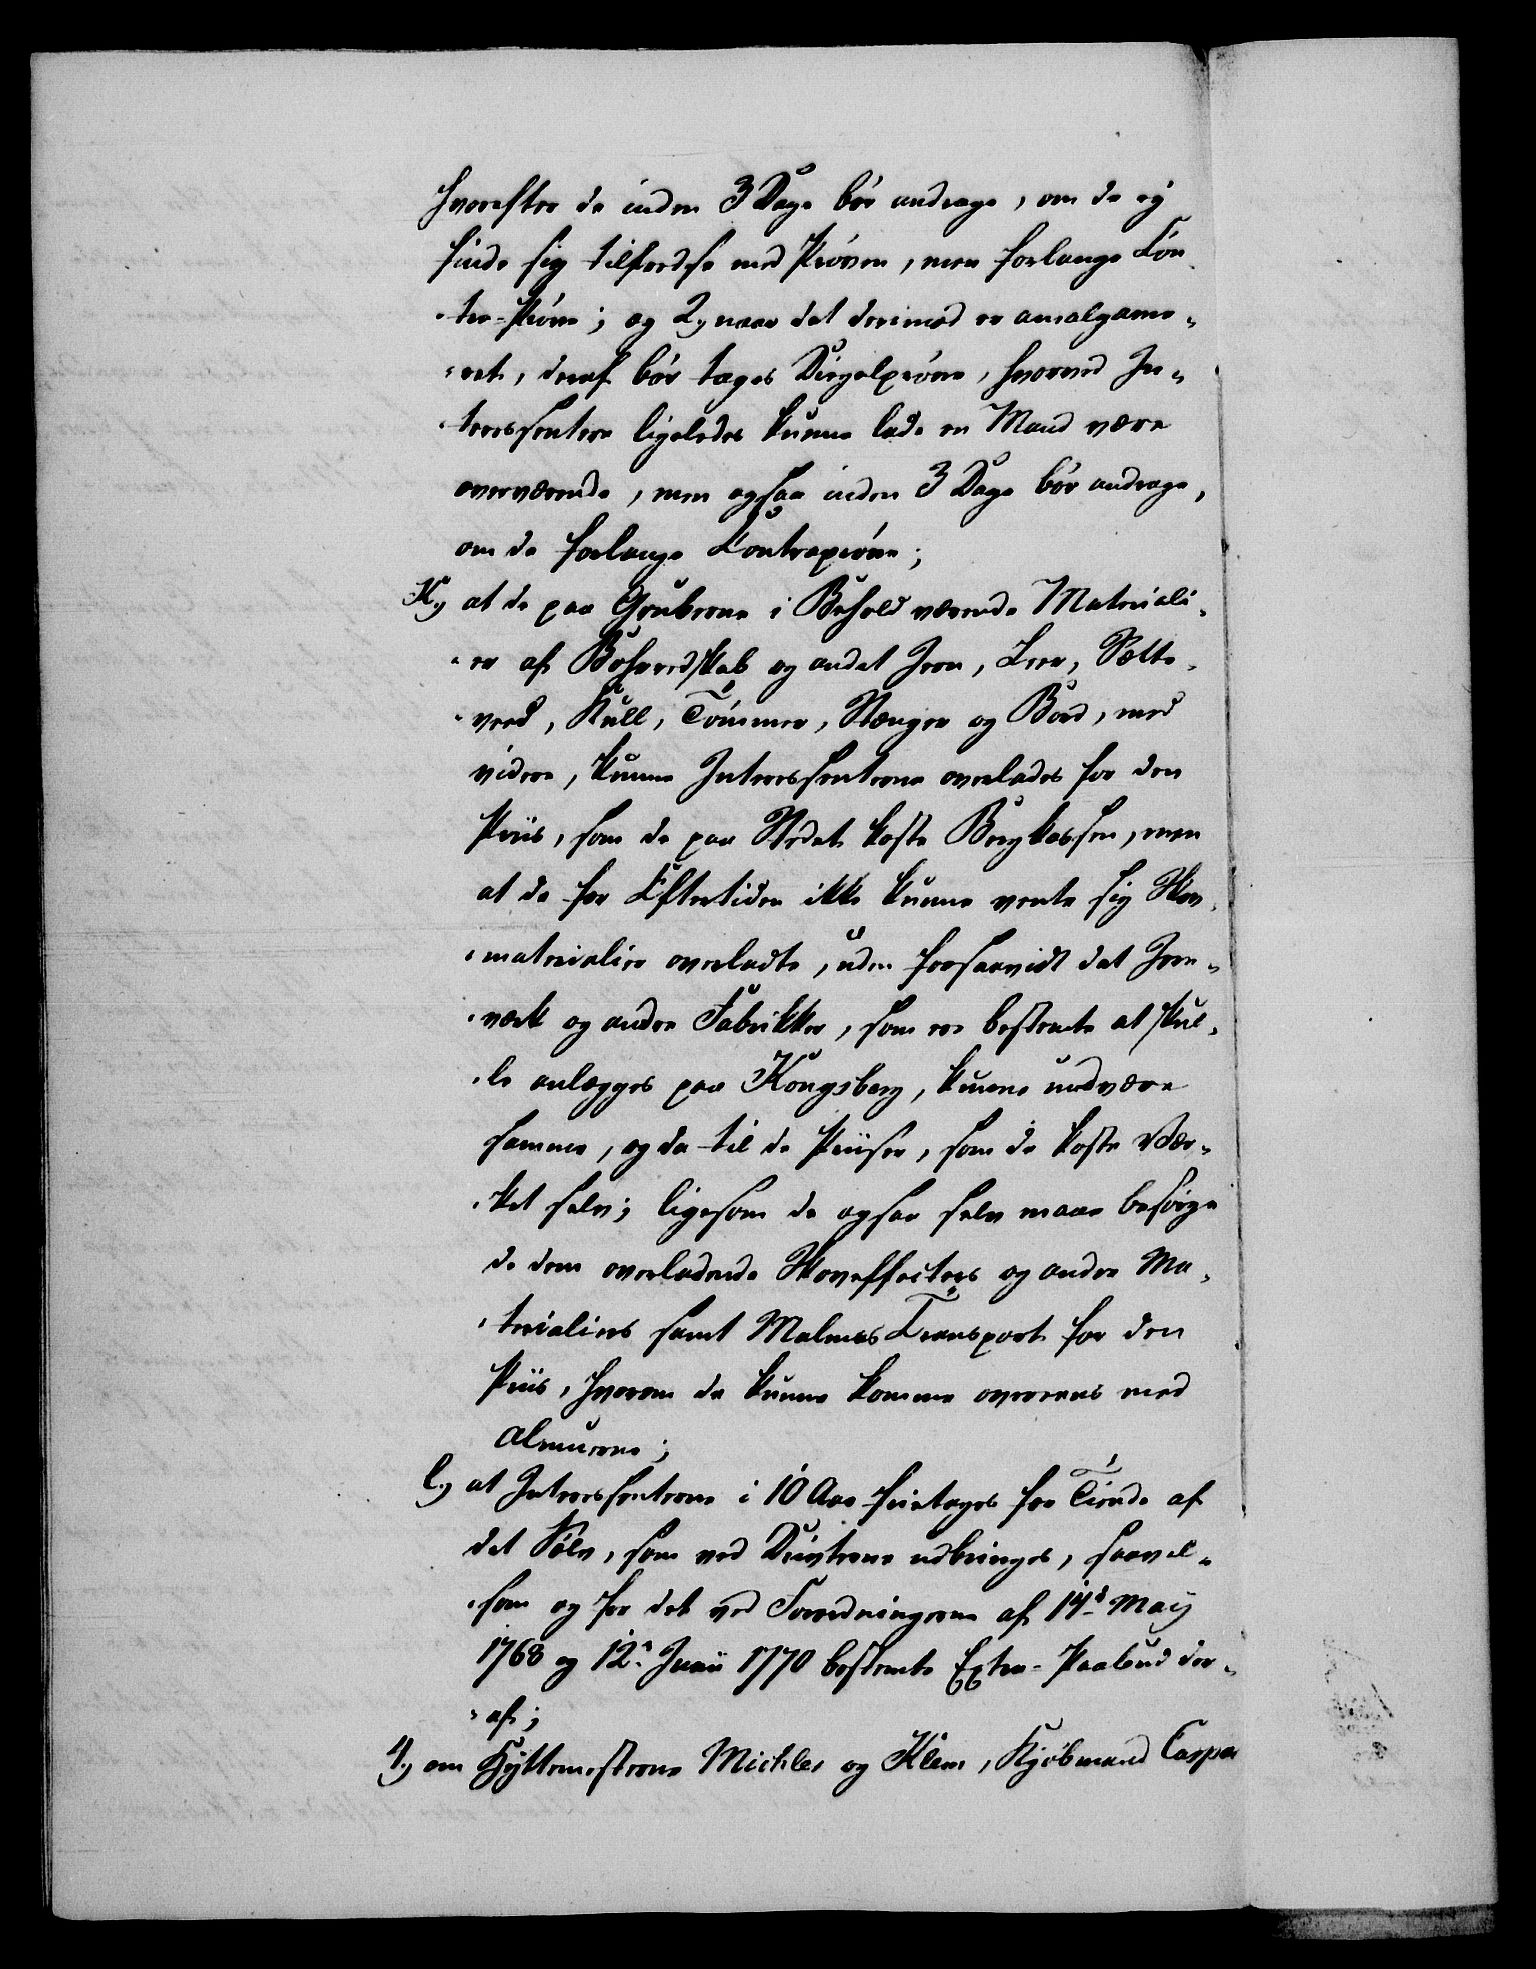 hvorefter de inden 3 Dage bør andrage, om de ej
finde sig tilfredse med Prøven, men forlange Con¬
-tra-Prøve; og 2, naar det derimod er amalgame¬
ret, deraf bør tages Diegelprøve, hvorved In¬
teressentere ligeledes kunne lade en Mand være
overværende, men ogsaa inden 3 Dage bør andrage,
om de forlange Contraprøve;
K, at de paa Gruberne i Behold værende Materiali¬
er af Bohrredskab og andet Jern, Leer, Sætte¬
veed, Kull, Tømmer, Stænger og Bord, med
videre, kunne Interessenterne overlades for den
Priis, som de paa Stedet koste Bergkassen, men
at de for Eftertiden ikke kunne vente sig Skov¬
materialier overladte, uden forsaavidt det Jern¬
værk og andre Fabrikker, som ere bestemte at skul¬
le anlægges paa Kongsberg, kunne undvære
samme, og da til de Priiser, som de koste Vær¬
ket selv; ligesom de ogsaa selv maae besørge
de dem overladende Skoveffecters og andre Ma¬
terialiers samt Malmens Transport for den
Priis, hvorom de kunne komme overeens med
Almuerne;
l, at Interessenterne i 10 Aar fritages for Tiende af
det Sølv, som ved Drivterne udbringes, saavel¬
som og for det ved Forordningerne af 14d May
1768 og 12te Junii 1770 bestemte Extra-Paabud der¬
af;
4, om Hyttemesterne Michler og Klem, Kjøbmand Caspar